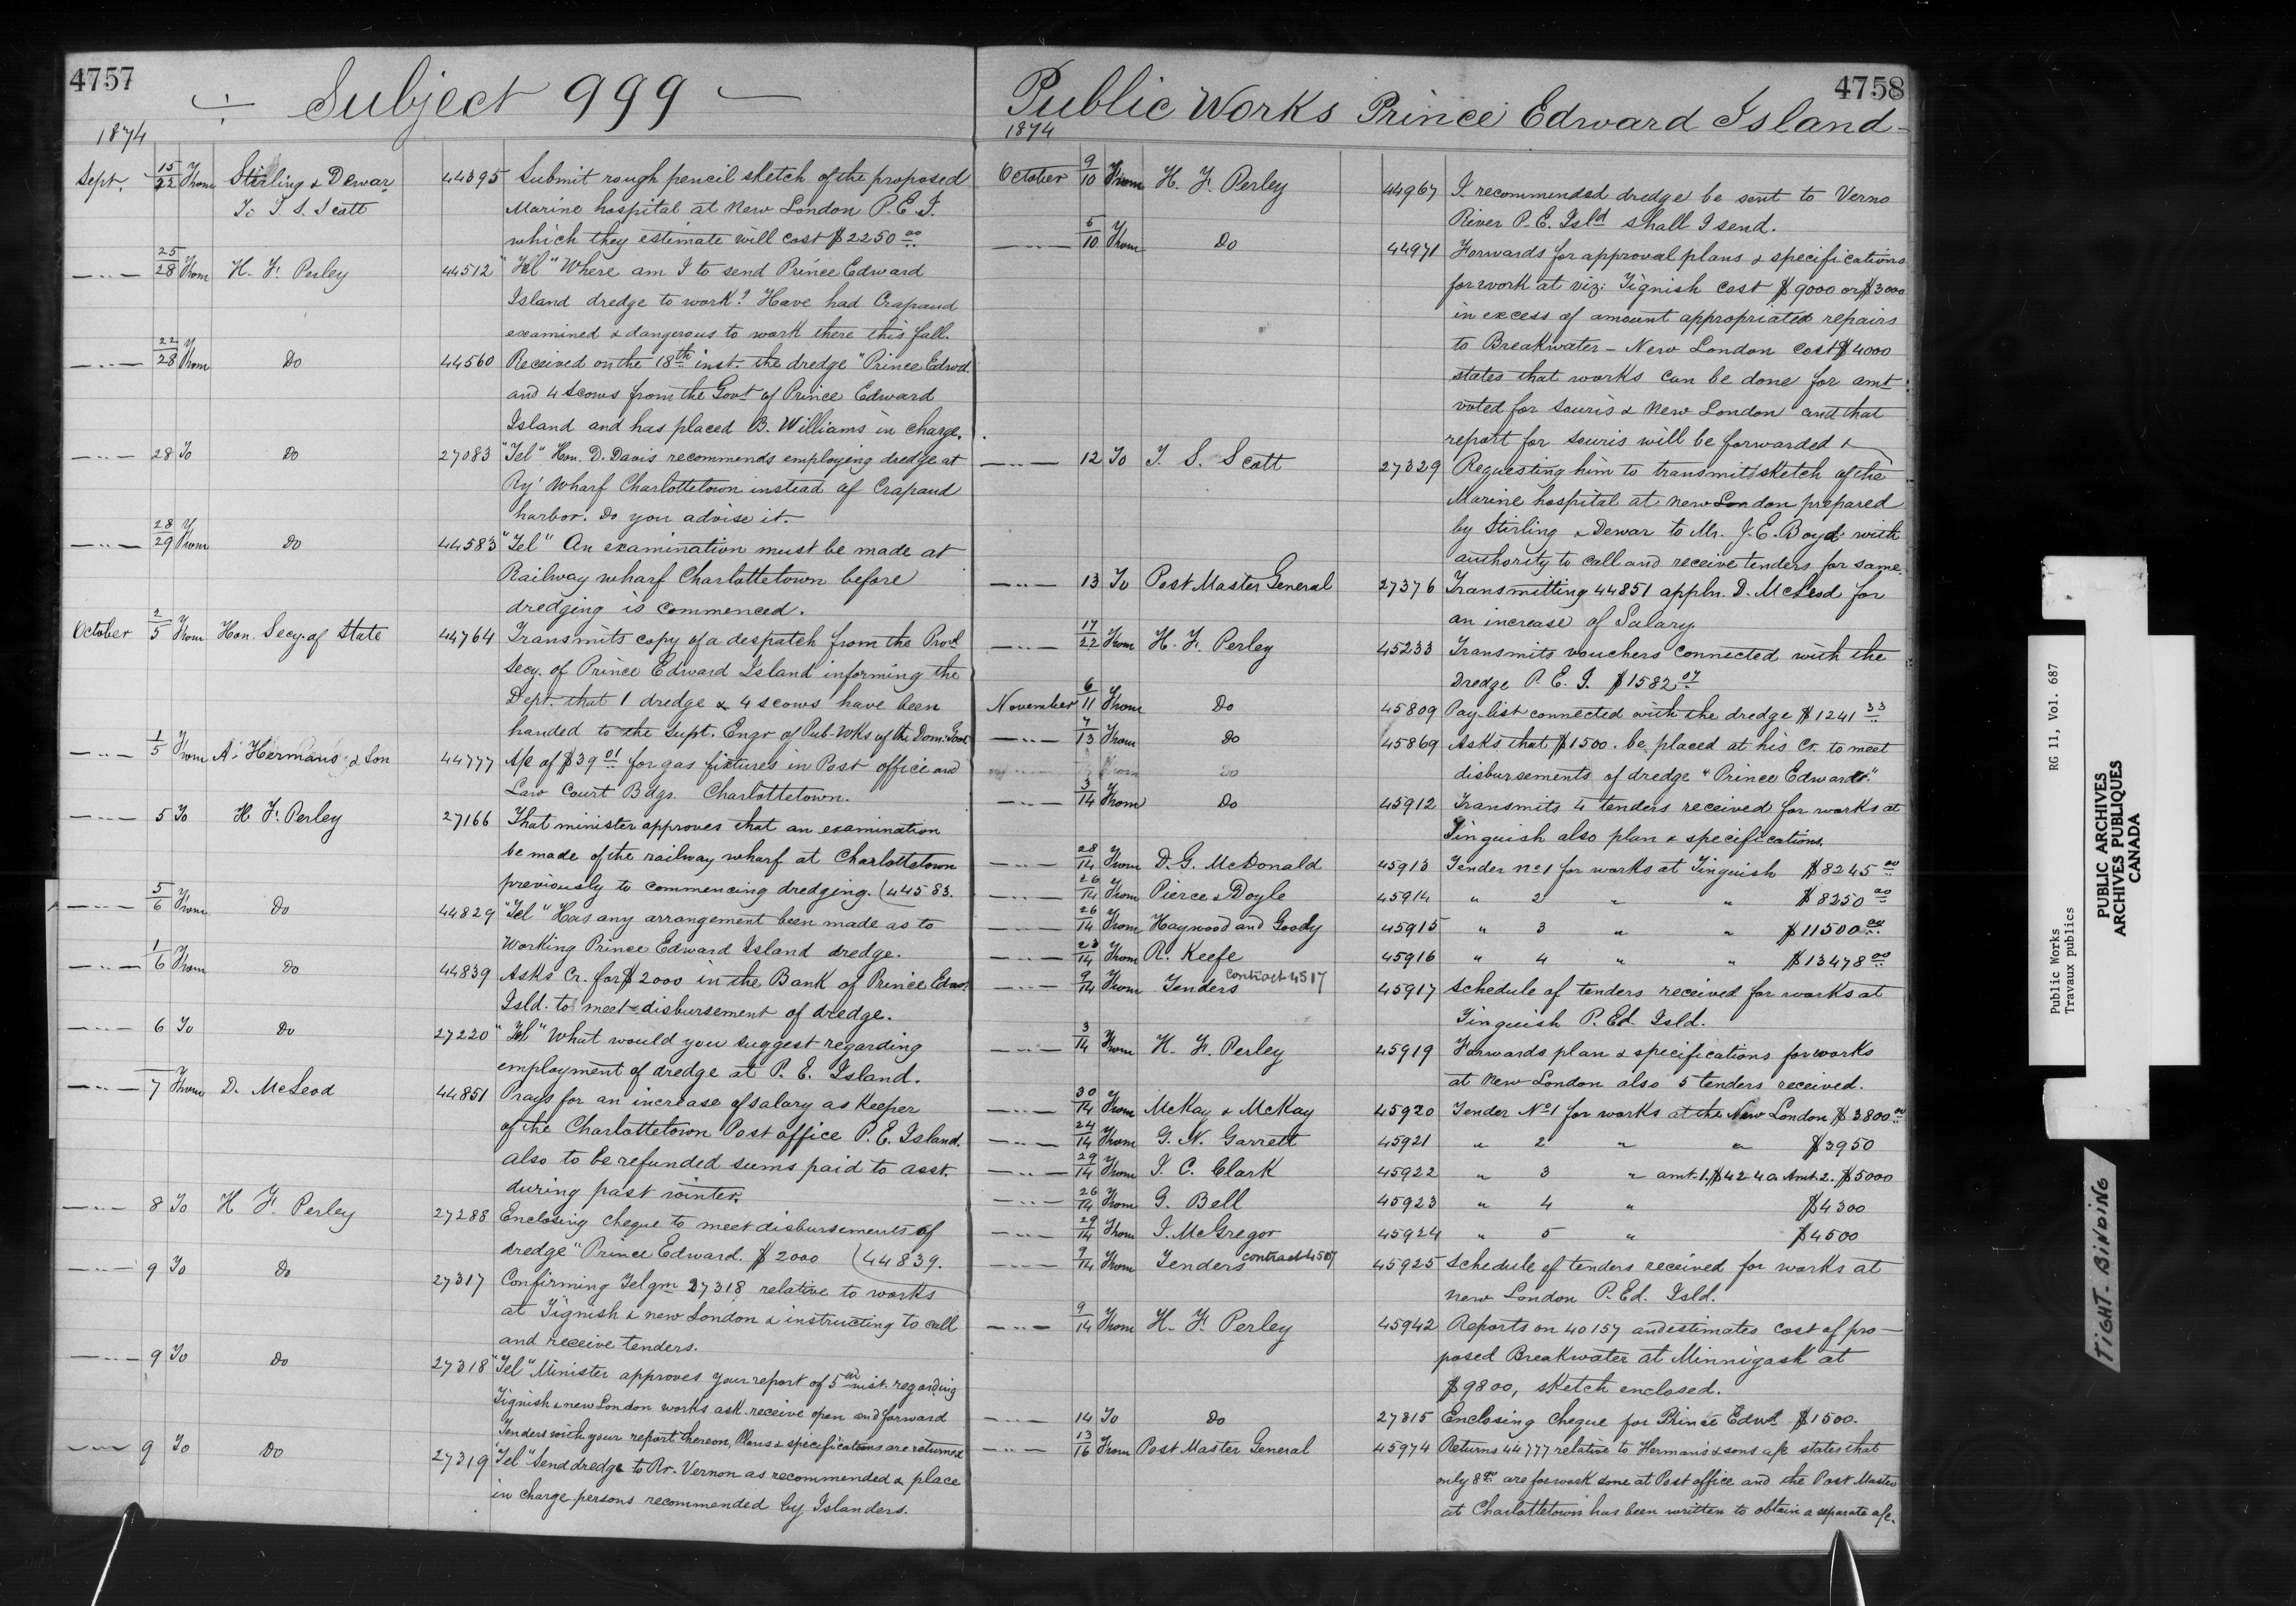 4757
÷ Subject 999 —
1874
Sept. 15/22 From Stirling & Dewar 44395 Submit rough pencil sketch of the proposed
To T. S. Scott Marine hospital at New London P.E.I.
which they estimate will cost $2250 00
—..— 25/28 From H. F. Perley 44512 "Tel" Where am I to send Prince Edward
Island dredge to work? Have had Crapaud
examined & dangerous to work there this fall.
—..— 22/28 From Do 44560 Received on the 18th inst. the dredge "Prince Edwd.
and 4 scows from the Govt of Prince Edward
Island and has placed B. Williams in charge.
—..— 28 To Do 27083 "Tel" Hon. D. Davis recommends employing dredge at
Ry' Wharf Charlottetown instead of Crapaud
harbor. Do you advise it.
—..— 28/29 From Do 44583 "Tel" An examination must be made at
Railway wharf Charlottetown before
dredging is commenced.
October 2/5 From Hon. Secy. of State 44764 Transmits copy of a despatch from the Provl
Secy. of Prince Edward Island informing the
Dept. that 1 dredge & 4 scows have been
handed to the Supt. Engr of Pub-Wks of the Dom: Govt
—..— 1/5 From A. Hermans & Son 44777 A/c of $39 01 for gas fixtures in Post office and
Law Court Bdgs. Charlottetown.
—..— 5 To H. F. Perley 27166 That minister approves that an examination
be made of the railway wharf at Charlottetown
previously to commencing dredging. (44583.
—..— 5/6 From Do 44829 "Tel" Has any arrangement been made as to
Working Prince Edward Island dredge.
—..— 1/6 From Do 44839 Asks Cr. for $2000 in the Bank of Prince Edwd.
Isld. to meet disbursement of dredge.
—..— 6 To Do 27220 "Tel" What would you suggest regarding
employment of dredge at P. E. Island.
—..— 7 From D. McLeod 44851 Prays for an increase of salary as Keeper
of the Charlottetown Post office P.E. Island.
also to be refunded sums paid to asst.
during past winter.
—..— 8 To H F. Perley 27288 Enclosing cheque to meet disbursements of
dredge "Prince Edward. $2000 (44839.
—..— 9 To Do 27317 Confirming Telgm 27318 relative to works
at Tignish & new London & instructing to call
and receive tenders.
—..— 9 To Do 27318 "Tel" Minister approves your report of 5th inst. regarding
Tignish & new London works ask receive open and forward
Tenders with your report thereon, Plans & specifications are returned
—..— 9 To Do 27319 "Tel" Send dredge to Rr. Vernon as recommended & place
in charge persons recommended by Islanders.
4758
Public Works Prince Edward Island —
1874
October 9/10 From H. F. Perley 44967 I recommended dredge be sent to Verno
River P. E. Isld shall I send.
—..— 5/10 From Do 44971 Forwards for approval plans & specifications
for work at viz: Tignish cost $9000 or $3000
in excess of amount appropriated repairs
to Breakwater — New London cost $4000
states that works can be done for amt
voted for Souris & New London and that
report for Souris will be forwarded
—..— 12 To T. S. Scott 27329 Requesting him to transmit sketch of the
Marine hospital at new London prepared
by Stirling & Dewar to Mr. J. E. Boyd with
authority to call and receive tenders for same.
—..— 13 To Post Master General 27376 Transmitting 44851 appln. D. McLeod for
an increase of Salary.
—..— 17/22 From H. F. Perley 45233 Transmits vouchers connected with the
Dredge P. E. I. $1582 07
November 6/11 From Do 45809 Pay list connected with the dredge $1241 33
—..— 7/13 From Do 45869 Asks that $1500. be placed at his Cr. to meet
disbursements of dredge "Prince Edward."
From Do
—..— 3/14 From Do 45912 Transmits 4 tenders received for works at
Tinguish also plan & specifications.
—..— 28/14 From D. G. McDonald 45913 Tender no 1 for works at Tinguish $8245 00
—..— 26/14 From Pierce & Doyle 45914 " 2 " " $8250 00
—..— 26/14 From Haywood and Goody 45915 " 3 " " $11500 00
—..— 23/14 From R. Keefe 45916 " 4 " " $13478 00
—..— 9/14 From Tenders Contract 4517 45917 Schedule of tenders received for works at
Tinguish P. Ed Isld.
—..— 3/14 From H. F. Perley 45919 Forwards plan & specifications for works
at New London also 5 tenders received.
—..— 30/14 From McKay & McKay 45920 Tender No 1 for works at the New London $3800 00
—..— 24/14 From G. N. Garrett 45921 " 2 " " $3950
—..— 29/14 From I. C. Clark 45922 " 3 " amt. 1. $4240. Amt. 2. $5000
—..— 26/14 From G. Bell 45923 " 4 " $4300
—..— 29/14 From J. McGregor 45924 " 5 " $4500
—..— 9/14 From Tenders contract 4507 45925 Schedule of tenders received for works at
New London P. Ed. Isld.
—..— 9/14 From H. F. Perley 45942 Reports on 40157 and estimates cost of pro—
posed Breakwater at Minnigash at
$9800, sketch enclosed.
—..— 14 To Do 27815 Enclosing Cheque for Prince Edwd. $1500.
—..— 13/16 From Post Master General 45974 Returns 44777 relative to Herman's & sons a/c states that
only 8 00 are for work done at Post office and the Post Master
at Charlottetown has been written to obtain a separate a/c.
Public Works RG 11, Vol. 687
Travaux publics
PUBLIC ARCHIVES
ARCHIVES PUBLIQUES
CANADA
TIGHT BINDING